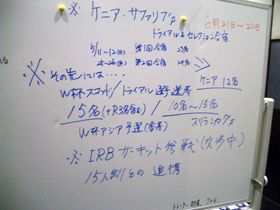 ※ ケニア・サファリ7's
6月21日~22日
トライアル&セレクション合宿
5/11~12(日) 第1回合宿 27名
25~26(日) 第2回合宿 24名
※ その先には・・・・
ケニア 12名
W杯スコット/トライアル選考選考
15名(+R3名含む)/10名~15名
W杯アジア予選(香港) スリランカ7's
※ IRBサーキット参戦(交歩中)
15人制との連携